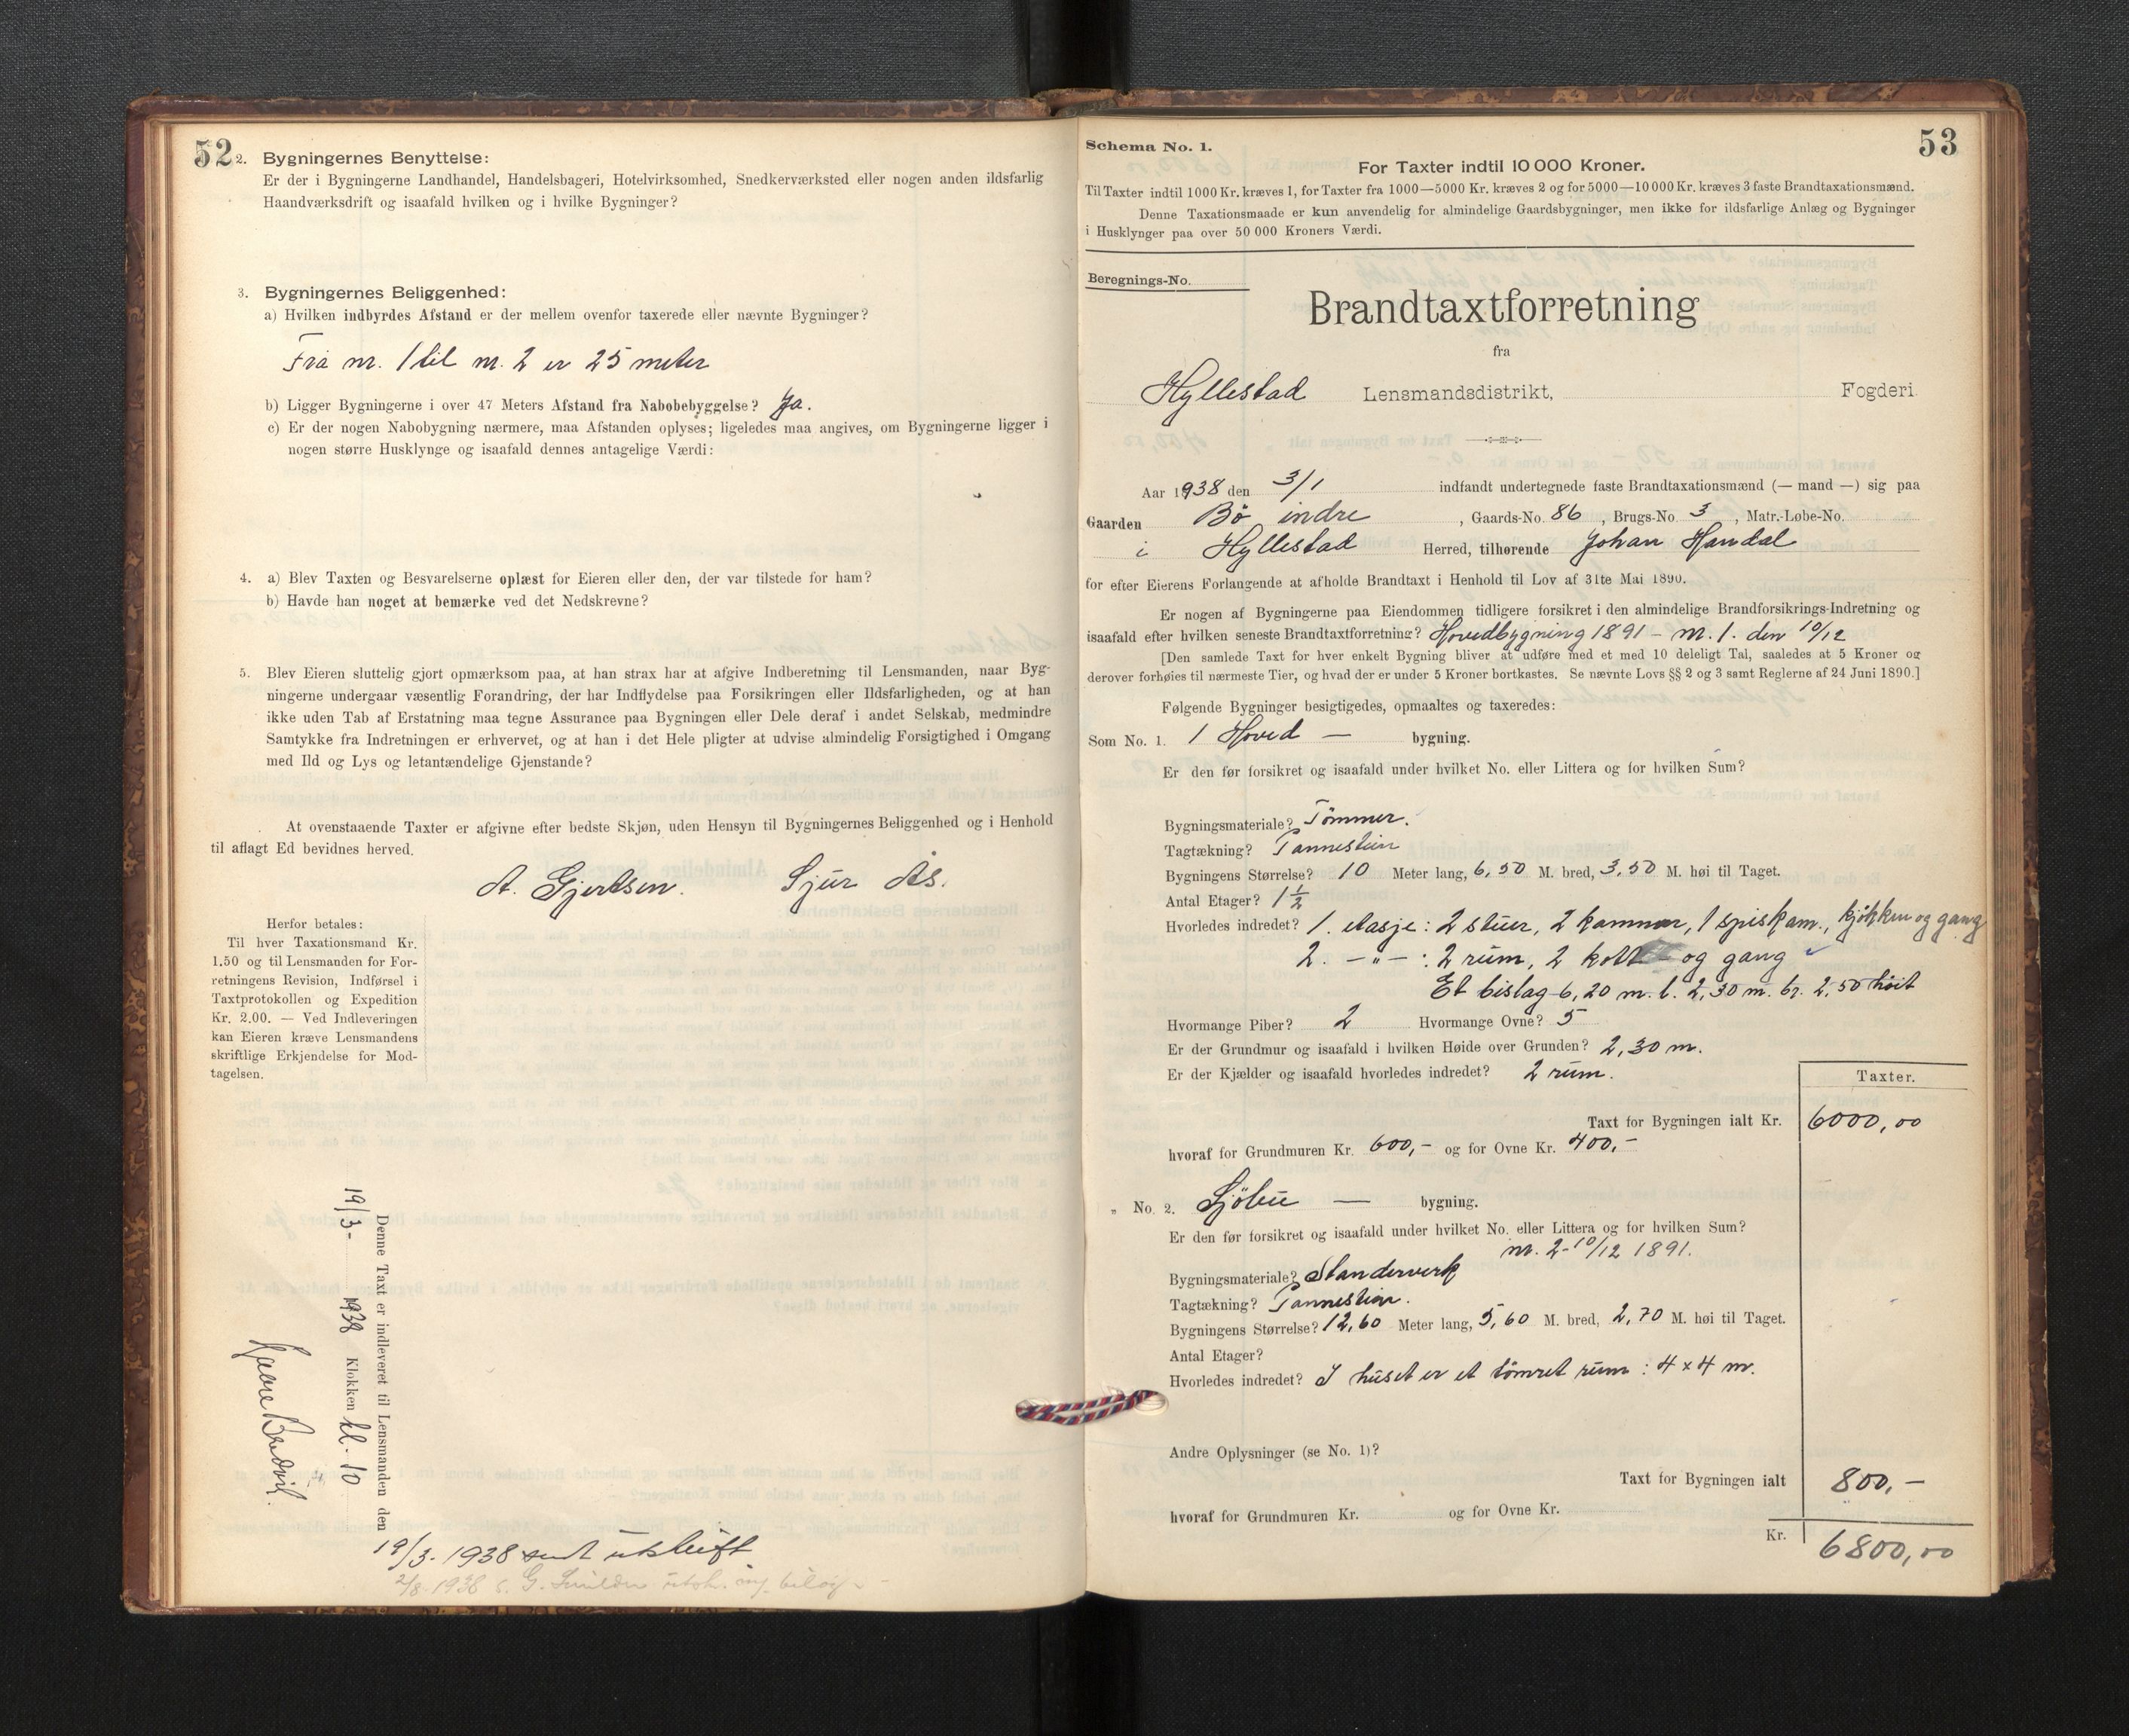 52
2. Bygningernes Benyttelse:
Er der i Bygningerne Landhandel, Handelsbageri, Hotelvirksomhed, Snedkerværksted eller nogen anden ildsfarlig
Haandværksdrift og isaafald hvilken og i hvilke Bygninger?
3. Bygningernes Beliggenhed:
a) Hvilken indbyrdes Afstand er der mellem ovenfor taxerede eller nævnte Bygninger?
Fra nr. 1 til nr. 2 er 25 meter
b) Ligger Bygningerne i over 47 Meters Afstand fra Nabobebyggelse? Ja.
c) Er der nogen Nabobygning nærmere, maa Afstanden oplyses; ligeledes maa angives, om Bygningerne ligger i
nogen større Husklynge og isaafald dennes antagelige Værdi:
4. a) Blev Taxten og Besvarelserne oplæst for Eieren eller den, der var tilstede for ham?
b) Havde han noget at bemærke ved det Nedskrevne?
5. Blev Eieren sluttelig gjort opmærksom paa, at han strax har at afgive Indberetning til Lensmanden, naar Byg-
ningerne undergaar væsentlig Forandring, der har Indflydelse paa Forsikringen eller Ildsfarligheden, og at han
ikke uden Tab af Erstatning maa tegne Assurance paa Bygningen eller Dele deraf i andet Selskab, medmindre
Samtykke fra Indretningen er erhvervet, og at han i det Hele pligter at udvise almindelig Forsigtighed i Omgang
med Ild og Lys og letantændelige Gjenstande?
At ovenstaaende Taxter er afgivne efter bedste Skjøn, uden Hensyn til Bygningernes Beliggenhed og i Henhold
til aflagt Ed bevidnes herved.
A. Gjertsen. Sjur Ås.
Herfor betales:
Til hver Taxationsmand Kr.
1.50 og til Lensmanden for For-
retningens Revision, Indførsel i
Taxtprotokollen og Expedition
Kr. 2.00. — Ved Indleveringen
kan Eieren kræve Lensmandens
skriftlige Erkjendelse for Mod-
tagelsen.
Denne Taxt er indleveret til Lensmanden den
19/3- 1938 Klokken kl. 10
19/3- 1938 sendt utskrift
2/8-1938
53
Schema No. 1.
For Taxter indtil 10 000 Kroner.
Til Taxter indtil 1000 Kr. kræves 1, for Taxter fra 1000—5000 Kr. kræves 2 og for 5000—10 000 Kr. kræves 3 faste Brandtaxationsmænd.
Denne Taxationsmaade er kun anvendelig for almindelige Gaardsbygninger, men ikke for ildsfarlige Anlæg og Bygninger
i Husklynger paa over 50 000 Kroners Værdi.
Beregnings-No.
Brandtaxtforretning
fra
Hyllestad Lensmandsdistrikt, Fogderi
Aar 1938 den 3/1 indfandt undertegnede faste Brandtaxationsmænd (— mand —) sig paa
Gaarden Bö indre, Gaards-No. 86, Brugs-No. 3, Matr.-Løbe-No.
i Hyllestad Herred, tilhørende Johan Handal
for efter Eierens Forlangende at afholde Brandtaxt i Henhold til Lov af 31te Mai 1890.
Er nogen af Bygningerne paa Eiendommen tidligere forsikret i den almindelige Brandforsikrings-Indretning og
isaafald efter hvilken seneste Brandtaxtforretning? Hovedbygning 1891 - nr. 1. den 10/12
[Den samlede Taxt for hver enkelt Bygning bliver at udføre med et med 10 deleligt Tal, saaledes at 5 Kroner og
derover forhøies til nærmeste Tier, og hvad der er under 5 Kroner bortkastes. Se nævnte Lovs §§ 2 og 3 samt Reglerne af 24 Juni 1890.]
Følgende Bygninger besigtigedes, opmaaltes og taxeredes:
Som No. 1. 1 Hoved — bygning.
Er den før forsikret og isaafald under hvilket No. eller Littera og for hvilken Sum?
Bygningsmateriale? Tömmer.
Tagtækning? Pannestein
Bygningens Størrelse? 10 Meter lang, 6,50 M. bred, 3,50 M. høi til Taget.
Antal Etager? 1 1/2
Hvorledes indredet? 1. etasje: 2 stuer, 2 kammer, 1 spiskam., kjøkken og gang
2. -"- : 2 rum, 2 kott og gang
Et bislag 6,20 m. l. 2,30 m. br. 2,50 höit
Hvormange Piber? 2 Hvormange Ovne? 5
Er der Grundmur og isaafald i hvilken Høide over Grunden? 2,30 m.
Er der Kjælder og isaafald hvorledes indredet? 2 rum.
Taxter.
Taxt for Bygningen ialt Kr. 6000,00
hvoraf for Grundmuren Kr. 600,- og for Ovne Kr. 400,-
„ No. 2. Sjöbu — bygning.
Er den før forsikret og isaafald under hvilket No. eller Littera og for hvilken Sum?
nr. 2 - 10/12 1891.
Bygningsmateriale? Standerverk
Tagtækning? Pannestein.
Bygningens Størrelse? 12,60 Meter lang, 5,60 M. bred, 2,70 M. høi til Taget.
Antal Etager?
Hvorledes indredet? I huset er et tömret rum: 4 x 4 m.
Andre Oplysninger (se No. 1)?
Taxt for Bygningen ialt 800,-
hvoraf for Grundmuren Kr. og for Ovne Kr.
Kr. 6800,00